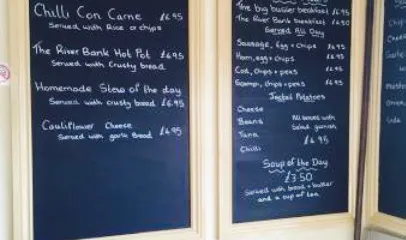 Chilli Con Carne £6.95
Served with Rice or chips
The River Bank Hot Pot £6.95
Served with Crusty bread
Homemade Stew of the day
Served with crusty bread £6.95
Cauliflower Cheese
Served with garlic Bread £6.95
The big busker breakfast £6.95
The River Bank breakfast £6.50
Served All Day
Sausage, Egg + Chips £6.95
Ham, egg + chips £6.95
Cod, Chips + peas £6.95
Scampi, chips + peas £6.95
Jacket Potatoes
Cheese
Beans
Tuna
Chilli
All served with
Salad garnish
£4.95
Soup of the Day
£3.50
Served with bread + butter
and a cup of tea